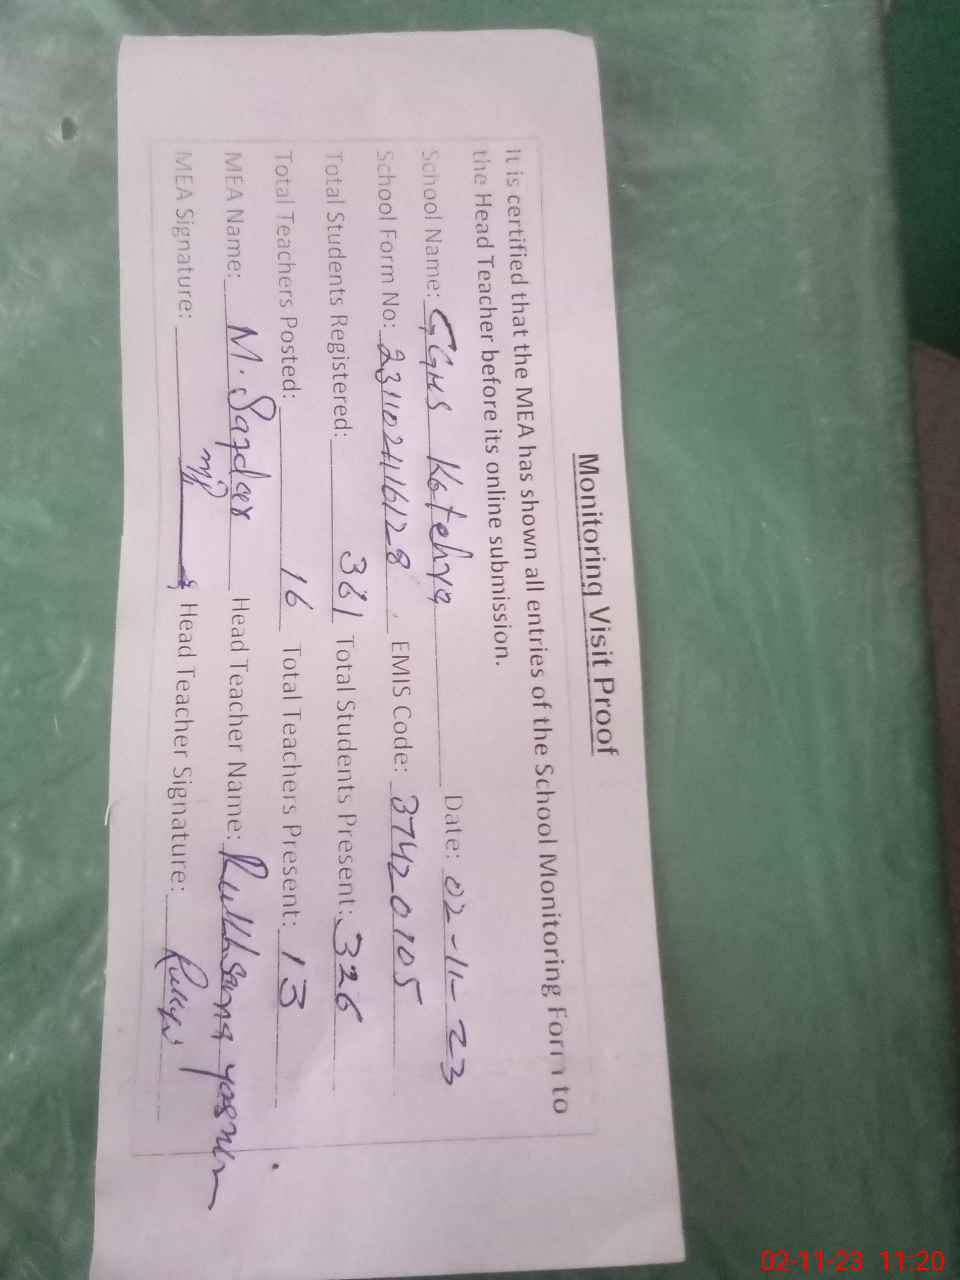 Monitoring Visit Proof
It is certified that the MEA has shown all entries of the School Monitoring Form to
the Head Teacher before its online submission.
School Name: GGHS Kotehra Date: 02-11-23
School Form No: 2311024116128 EMIS Code: 37420105
Total Students Registered: 381 Total Students Present: 326
Total Teachers Posted: 16 Total Teachers Present: 13
MEA Name: M. Safdar Head Teacher Name: Rukhsana yasmin
MEA Signature: Head Teacher Signature:
02-11-23 11:20